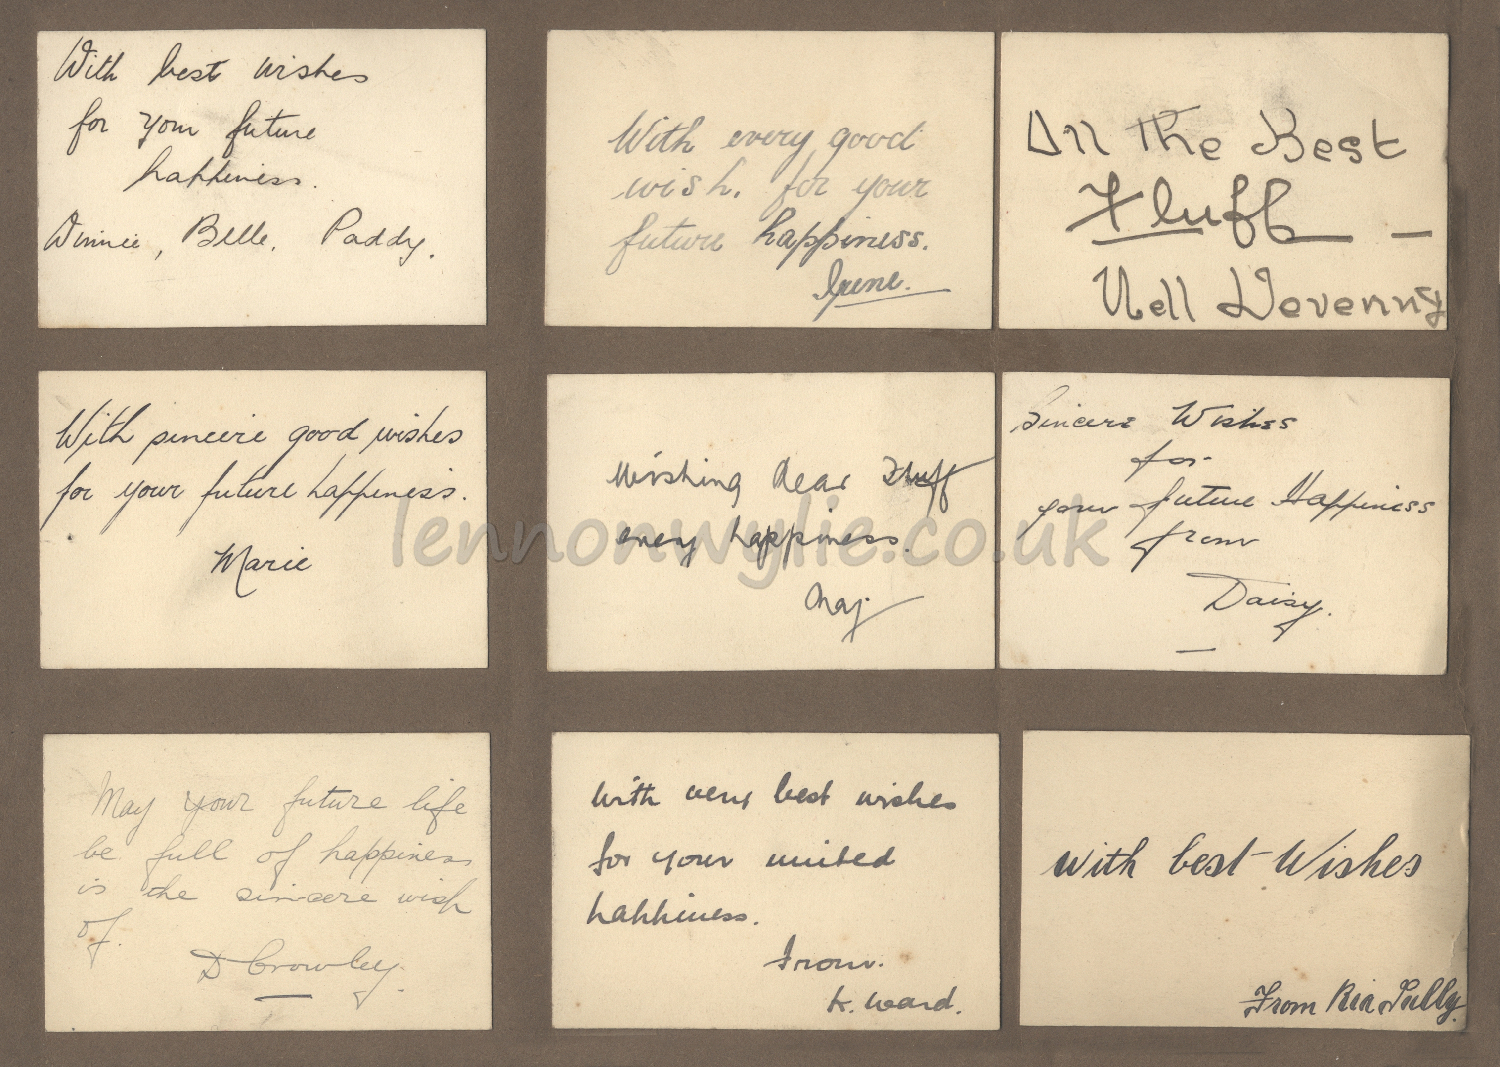 With best wishes
for your future
happiness.
Winnie, Belle, Paddy.
With every good
wish. for your
future happiness.
Irene.
All The Best
Fluff
Nell Devenny
With sincere good wishes
for your future happiness.
Marie
Wishing dear Fluff
every happiness.
May
Sincere Wishes
for
your future Happiness
from
Daisy.
May your future life
be full of happiness
is the sincere wish
of.
D Crowley.
With very best wishes
for your united
happiness.
From.
K. Ward.
With best Wishes
From Ria Tully.
lennonwylie.co.uk